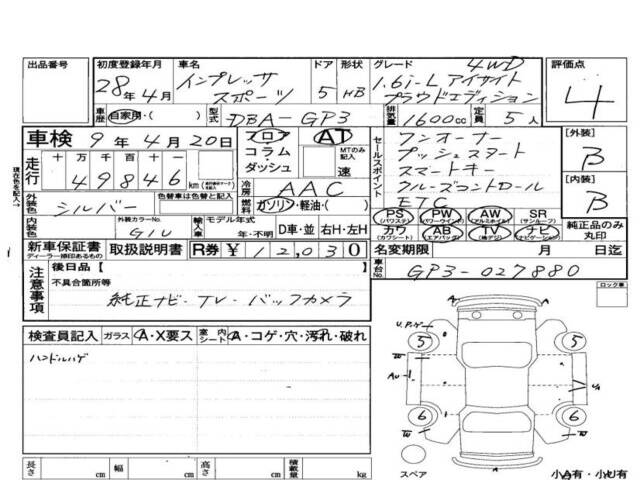 出品番号 初度登録年月 車名 ドア 形状 グレード 評価点
28年4月 インプレッサ スポーツ 5 HB 4WD 1.6i-L アイサイト プラウドエディション 4
車歴 自家用・( ) 型式 DBA-GP3 排気量 1600cc 定員 5人
車検 9年4月20日 フロア コラム・ダッシュ AT MTのみ記入 速
走行 十 万 千 百 十 一
49846 km
冷房 AAC
外装色 シルバー 色替車は色替と記入 燃料 ガソリン・軽油・( )
内装色 外装カラーNo. G1U 輸入車 モデル年式 年・不明 D車・並 右H・左H
セールスポイント
ワンオーナー
プッシュスタート
スマートキー
クルーズコントロール
ETC
[外装] B
[内装] B
PS (パワステ) PW (パワーウインド) AW (アルミホイル) SR (サンルーフ)
カワ (カワシート) AB (エアバッグ) TV (純デジ) ナビ (ナビゲーション)
純正品のみ丸印
現在色を記入→
新車保証書 ディーラー捺印あるもの 取扱説明書 R券 ¥12,030
名変期限 月 日迄
車台No. GP3-027880
注意事項 後日品【 】
不具合箇所等
純正ナビ・TV・バックカメラ
ロック車
検査員記入 ガラス A・X要ス 室内シート A・コゲ・穴・汚れ・破れ
ハンドルハゲ
5 5
6 6
スペア
長さ cm 幅 cm 高さ cm 積載量 kg